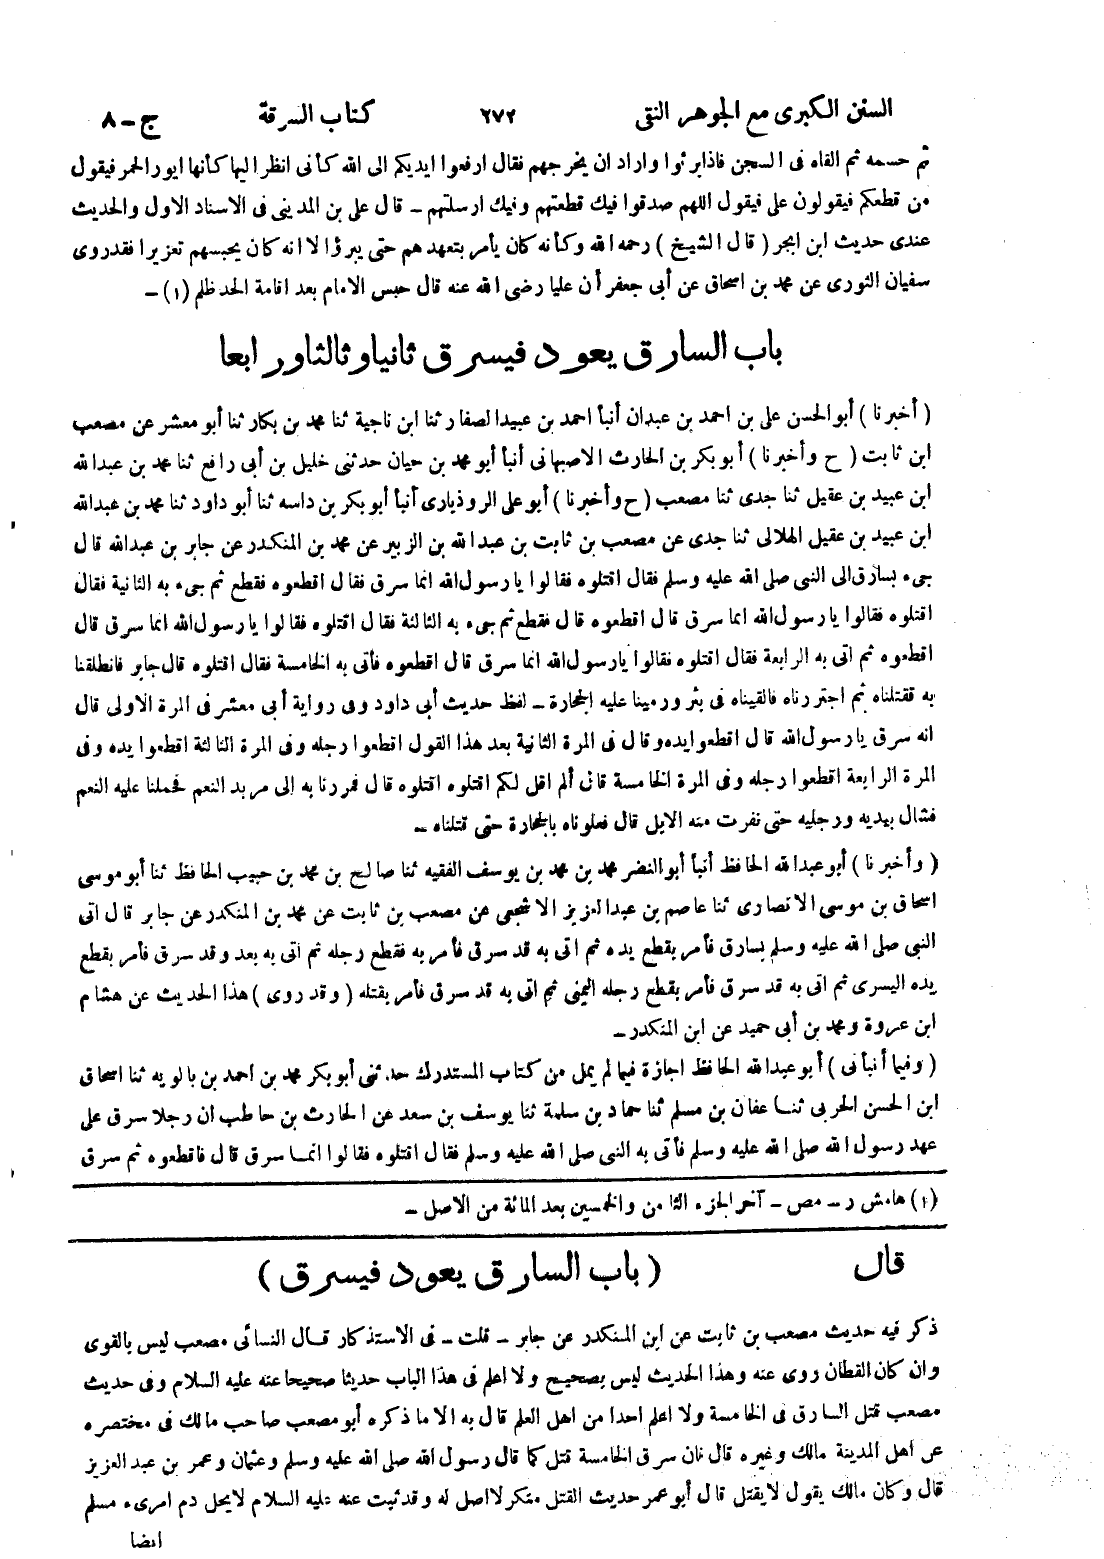 السنن الكبرى مع الجوهر النقى ٢٧٢ كتاب السرقة ج – ٨
ثم حسمه ثم القاه فى السجن فاذا برئوا واراد ان يخرجهم فقال ارفعوا ايديكم الى الله كأنى انظر اليها كأنها ايور الحمر فيقول
من قطعكم فيقولون على فيقول اللهم صدقوا فيك قطعتهم وفيك ارسلتهم – قال على بن المدينى فى الاسناد الاول والحديث
عندى حديث ابن ابجر ( قال الشيخ ) رحمه الله وكأنه كان يأمر بتعهدهم حتى يبرؤا لا انه كان يحبسهم تعزيرا فقد روى
سفيان الثورى عن محمد بن اسحاق عن أبى جعفر أن عليا رضى الله عنه قال حبس الامام بعد اقامة الحد ظلم (١) –
باب السارق يعود فيسرق ثانيا وثالثا ورابعا
( أخبرنا ) أبو الحسن على بن احمد بن عبدان أنبأ احمد بن عبيد الصفار ثنا ابن ناجية ثنا محمد بن بكار ثنا أبو معشر عن مصعب
ابن ثابت ( ح وأخبرنا ) أبو بكر بن الحارث الاصبهانى أنبأ أبو محمد بن حيان حدثنى خليل بن أبى رافع ثنا محمد بن عبدالله
ابن عبيد بن عقيل ثنا جدى ثنا مصعب ( ح وأخبرنا ) أبو على الروذبارى أنبأ أبو بكر بن داسه ثنا أبو داود ثنا محمد بن عبدالله
ابن عبيد بن عقيل الهلالى ثنا جدى عن مصعب بن ثابت بن عبدالله بن الزبير عن محمد بن المنكدر عن جابر بن عبدالله قال
جىء بسارق الى النبى صلى الله عليه وسلم فقال اقتلوه فقالوا يا رسول الله انما سرق فقال اقطعوه فقطع ثم جىء به الثانية فقال
اقتلوه فقالوا يا رسول الله انما سرق قال اقطعوه قال فقطع ثم جىء به الثالثة فقال اقتلوه فقالوا يا رسول الله انما سرق قال
اقطعوه ثم اتى به الرابعة فقال اقتلوه فقالوا يا رسول الله انما سرق قال اقطعوه فأتى به الخامسة فقال اقتلوه قال جابر فانطلقنا
به فقتلناه ثم اجتررناه فالقيناه فى بئر ورمينا عليه الحجارة – لفظ حديث أبى داود وفى رواية أبى معشر فى المرة الاولى قال
انه سرق يا رسول الله قال اقطعوا يده وقال فى المرة الثانية بعد هذا القول اقطعوا رجله وفى المرة الثالثة اقطعوا يده وفى
المرة الرابعة اقطعوا رجله وفى المرة الخامسة قال ألم اقل لكم اقتلوه اقتلوه قال فمررنا به إلى مربد النعم فحملنا عليه النعم
فشال بيديه ورجليه حتى نفرت منه الابل قال فعلوناه بالحجارة حتى قتلناه –
( وأخبرنا ) أبو عبدالله الحافظ أنبأ أبو النضر محمد بن محمد بن يوسف الفقيه ثنا صالح بن محمد بن حبيب الحافظ ثنا أبو موسى
اسحاق بن موسى الانصارى ثنا عاصم بن عبدالعزيز الاشجعى عن مصعب بن ثابت عن محمد بن المنكدر عن جابر قال اتى
النبى صلى الله عليه وسلم بسارق فأمر بقطع يده ثم اتى به قد سرق فأمر به فقطع رجله ثم اتى به بعد وقد سرق فأمر بقطع
يده اليسرى ثم اتى به قد سرق فأمر بقطع رجله اليمنى ثم اتى به قد سرق فأمر بقتله ( وقد روى ) هذا الحديث عن هشام
ابن عروة ومحمد بن أبى حميد عن ابن المنكدر –
( وفيما أنبأنى ) أبو عبدالله الحافظ اجازة فيما لم يمل من كتاب المستدرك حدثنى أبو بكر محمد بن احمد بن بالويه ثنا اسحاق
ابن الحسن الحربى ثنا عفان بن مسلم ثنا حماد بن سلمة ثنا يوسف بن سعد عن الحارث بن حاطب ان رجلا سرق على
عهد رسول الله صلى الله عليه وسلم فأتى به النبى صلى الله عليه وسلم فقال اقتلوه فقالوا انما سرق قال فاقطعوه ثم سرق
(١) هامش ر – مص – آخر الجزء الثامن والخمسين بعد المائة من الاصل –
قال ( باب السارق يعود فيسرق )
ذكر فيه حديث مصعب بن ثابت عن ابن المنكدر عن جابر – قلت – فى الاستذكار قال النسائى مصعب ليس بالقوى
وان كان القطان روى عنه وهذا الحديث ليس بصحيح ولا اعلم فى هذا الباب حديثا صحيحا عنه عليه السلام وفى حديث
مصعب قتل السارق فى الخامسة ولا اعلم احدا من اهل العلم قال به الا ما ذكره أبو مصعب صاحب مالك فى مختصره
عن اهل المدينة مالك وغيره قال فان سرق الخامسة قتل كما قال رسول الله صلى الله عليه وسلم وعثمان وعمر بن عبد العزيز
قال وكان مالك يقول لا يقتل قال أبو عمر حديث القتل منكر لا اصل له وقد ثبت عنه عليه السلام لا يحل دم امرىء مسلم
ايضا